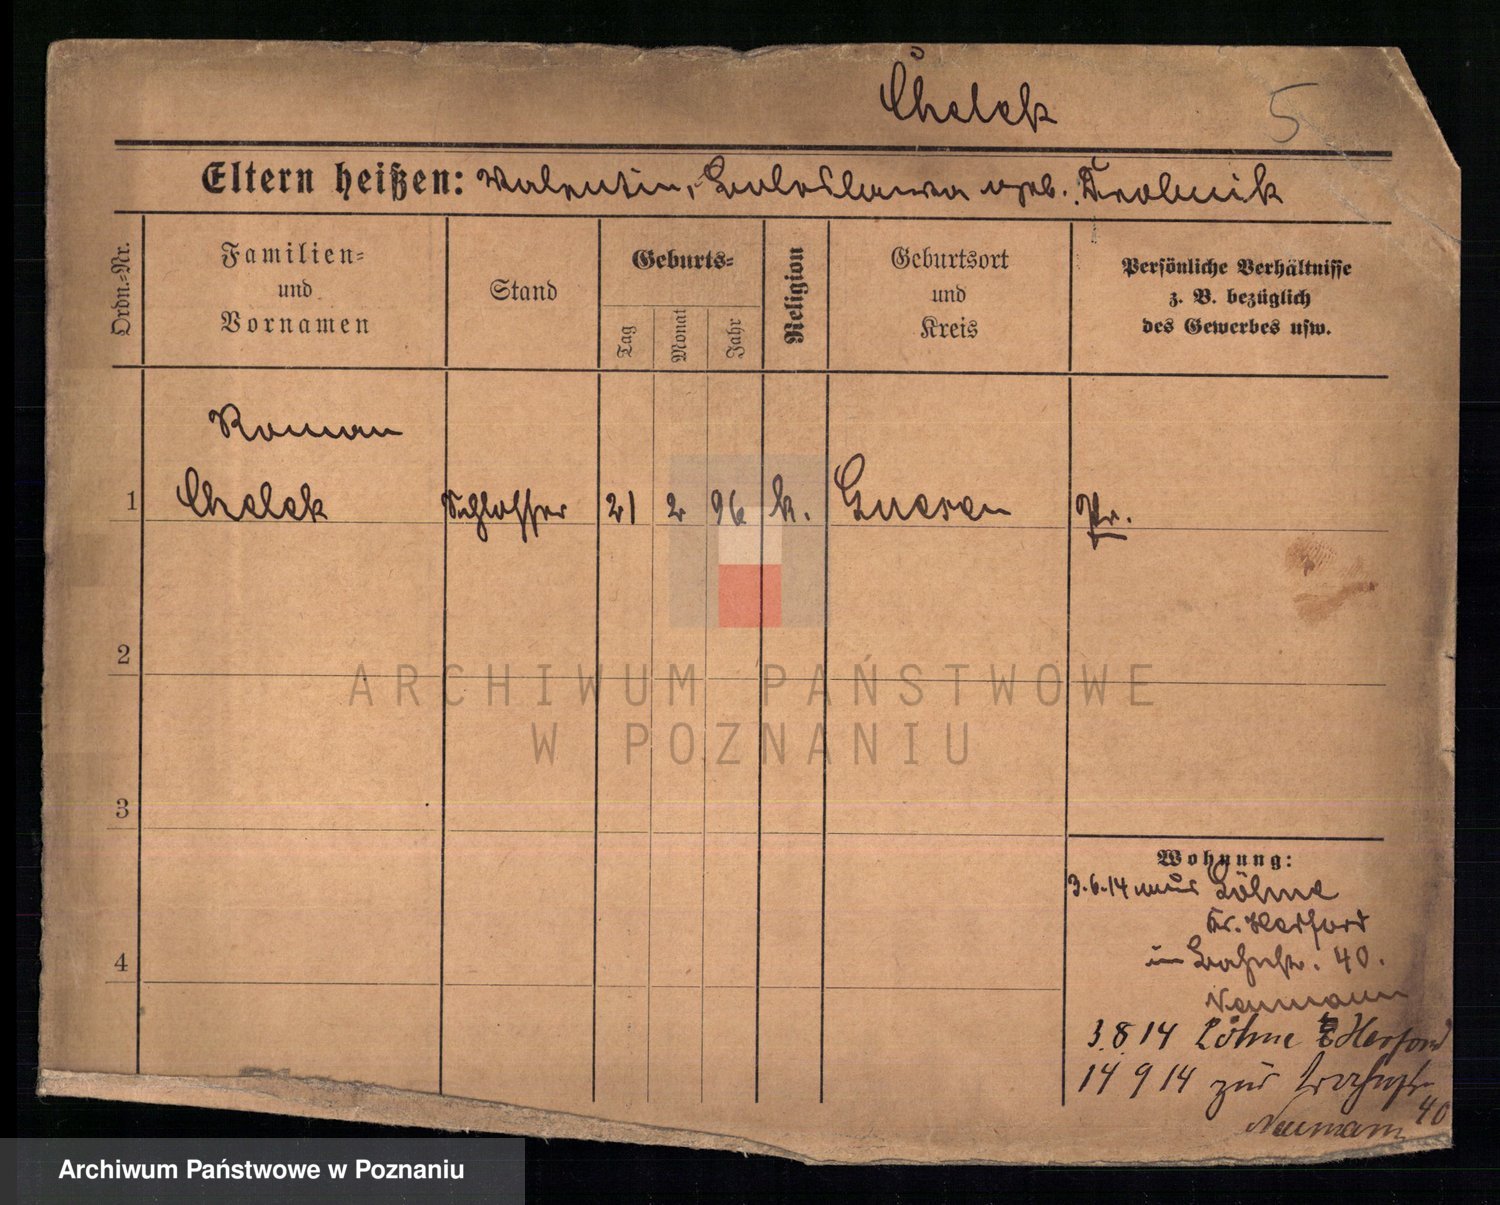 Chelek
5
Eltern heißen: Valentin, Boleslawa geb. Trolnik
Ordn.=Nr.
Familien=
und
Vornamen
Stand
Geburts=
Tag
Monat
Jahr
Religion
Geburtsort
und
Kreis
Persönliche Verhältnisse
z. B. bezüglich
des Gewerbes usw.
Roman
1 Chelek Schlosser 21 2 96 k. Gnesen Pr.
2
3
4
Wohnung:
3.6.14 nach Löhne
Kr. Herford
in 40.
Neumann
3.8.14 Löhne Herford
14 9 14 zur
40
Neumann
ARCHIWUM PAŃSTWOWE
W POZNANIU
Archiwum Państwowe w Poznaniu